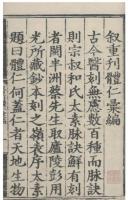 敘重刊體仁彙編
古今醫刻無慮數百種而脉訣
則宗叔和氏太素脉訣鮮有刻
者閩半洲蔡先生取廬陵彭用
光所藏鈔本刻之嶺表序太素
題曰體仁何蓋仁者天地生物